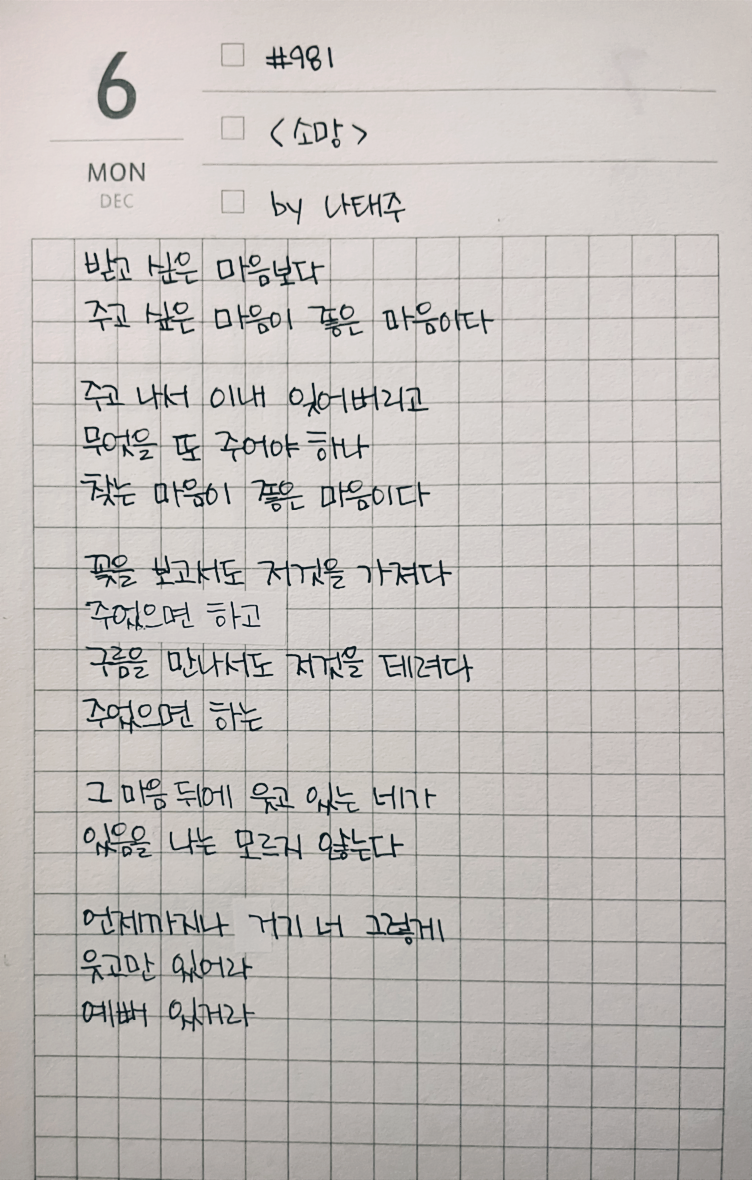 6
MON
DEC
#981
<소망>
by 나태주
받고 싶은 마음보다
주고 싶은 마음이 좋은 마음이다
주고 나서 이내 잊어버리고
무엇을 또 주어야 하나
찾는 마음이 좋은 마음이다
꽃을 보고서도 저것을 가져다
주었으면 하고
구름을 만나서도 저것을 데려다
주었으면 하는
그 마음 뒤에 웃고 있는 네가
있음을 나는 모르지 않는다
언제까지나 거기 너 그렇게
웃고만 있어라
예뻐 있거라